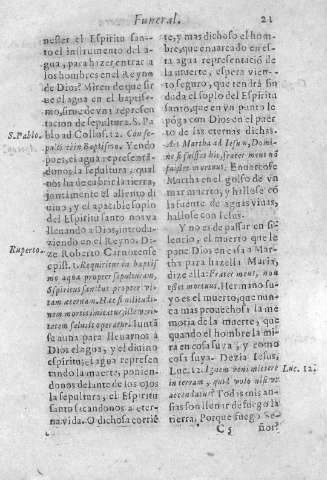 Funeral. 21
nester el Espiritu san-
to el instrumento del a-
gua, para hazer entrar a
los hombres en el Reyno
de Dios? Miren de que sir
ue el agua en el baptes-
mo, sirue de vna represen
tacion de sepultura. S. Pa
S. Pablo.
blo ad Collos. 12. Con se-
pulti in Baptismo. Y endo
pues, el agua representã-
donos la sepultura, qual
nos ha de cubrir la tierra,
juntamente el aliento di
uino, y el apacible soplo
del Espiritu santo nos va
lleuando a Dios, introdu-
ziendo en el Reyno. Di-
Ruperto.
ze Roberto Carnotense
epist. 1. Requiritur in baptis
mo aqua propter sepulturam,
Spiritus sanctus propter vi-
tam æternam. Hæc similitudi-
nem mortis imitatur, ille veri-
tatem salutis operatur. Iuntã
se a una para lleuarnos à
Dios el agua, y el diuino
espiritu; el agua represen
tando la muerte, ponien-
donos delante de los ojos
la sepultura, el Espiritu
santo sacandonos a eter-
na vida. O dichosa corriē
te, y mas dichoso el hom-
bre, que enuarcado en es-
ta agua representació de
la muerte, espera vien-
to seguro, que tendrá sin
duda el soplo del Espiritu
santo, que en vn punto le
põga con Dios en el puer
to de las eternas dichas.
Ait Martha ad Iesum, Domi-
ne si fuisses hic, frater meus nõ
fuisset mortuus. Engolfose
Martha en el golfo de vn
mar muerto, y hallose có
la fuente de aguas viuas,
hallose con Iesus.
Y no es de passar en si-
lencio, el muerto que le
pone Dios en casa a Mar-
tha para hazella Maria,
dize ella: Frater meus, non
esset mortuus. Hermano su-
yo es el muerto, que nun-
ca mas prouechosa la me
moria de la muerte, que
quando el hombre la mi-
ra en cosa suya, y como
cosa suya. Dezia Iesus,
Luc. 12. Ignem veni mittere
Luc. 12.
in terram, quid volo nisi vt
accendatur? Todas mis an-
sias son llenar de fuego la
tierra. Porque fuego Se-
C 5 ñor?